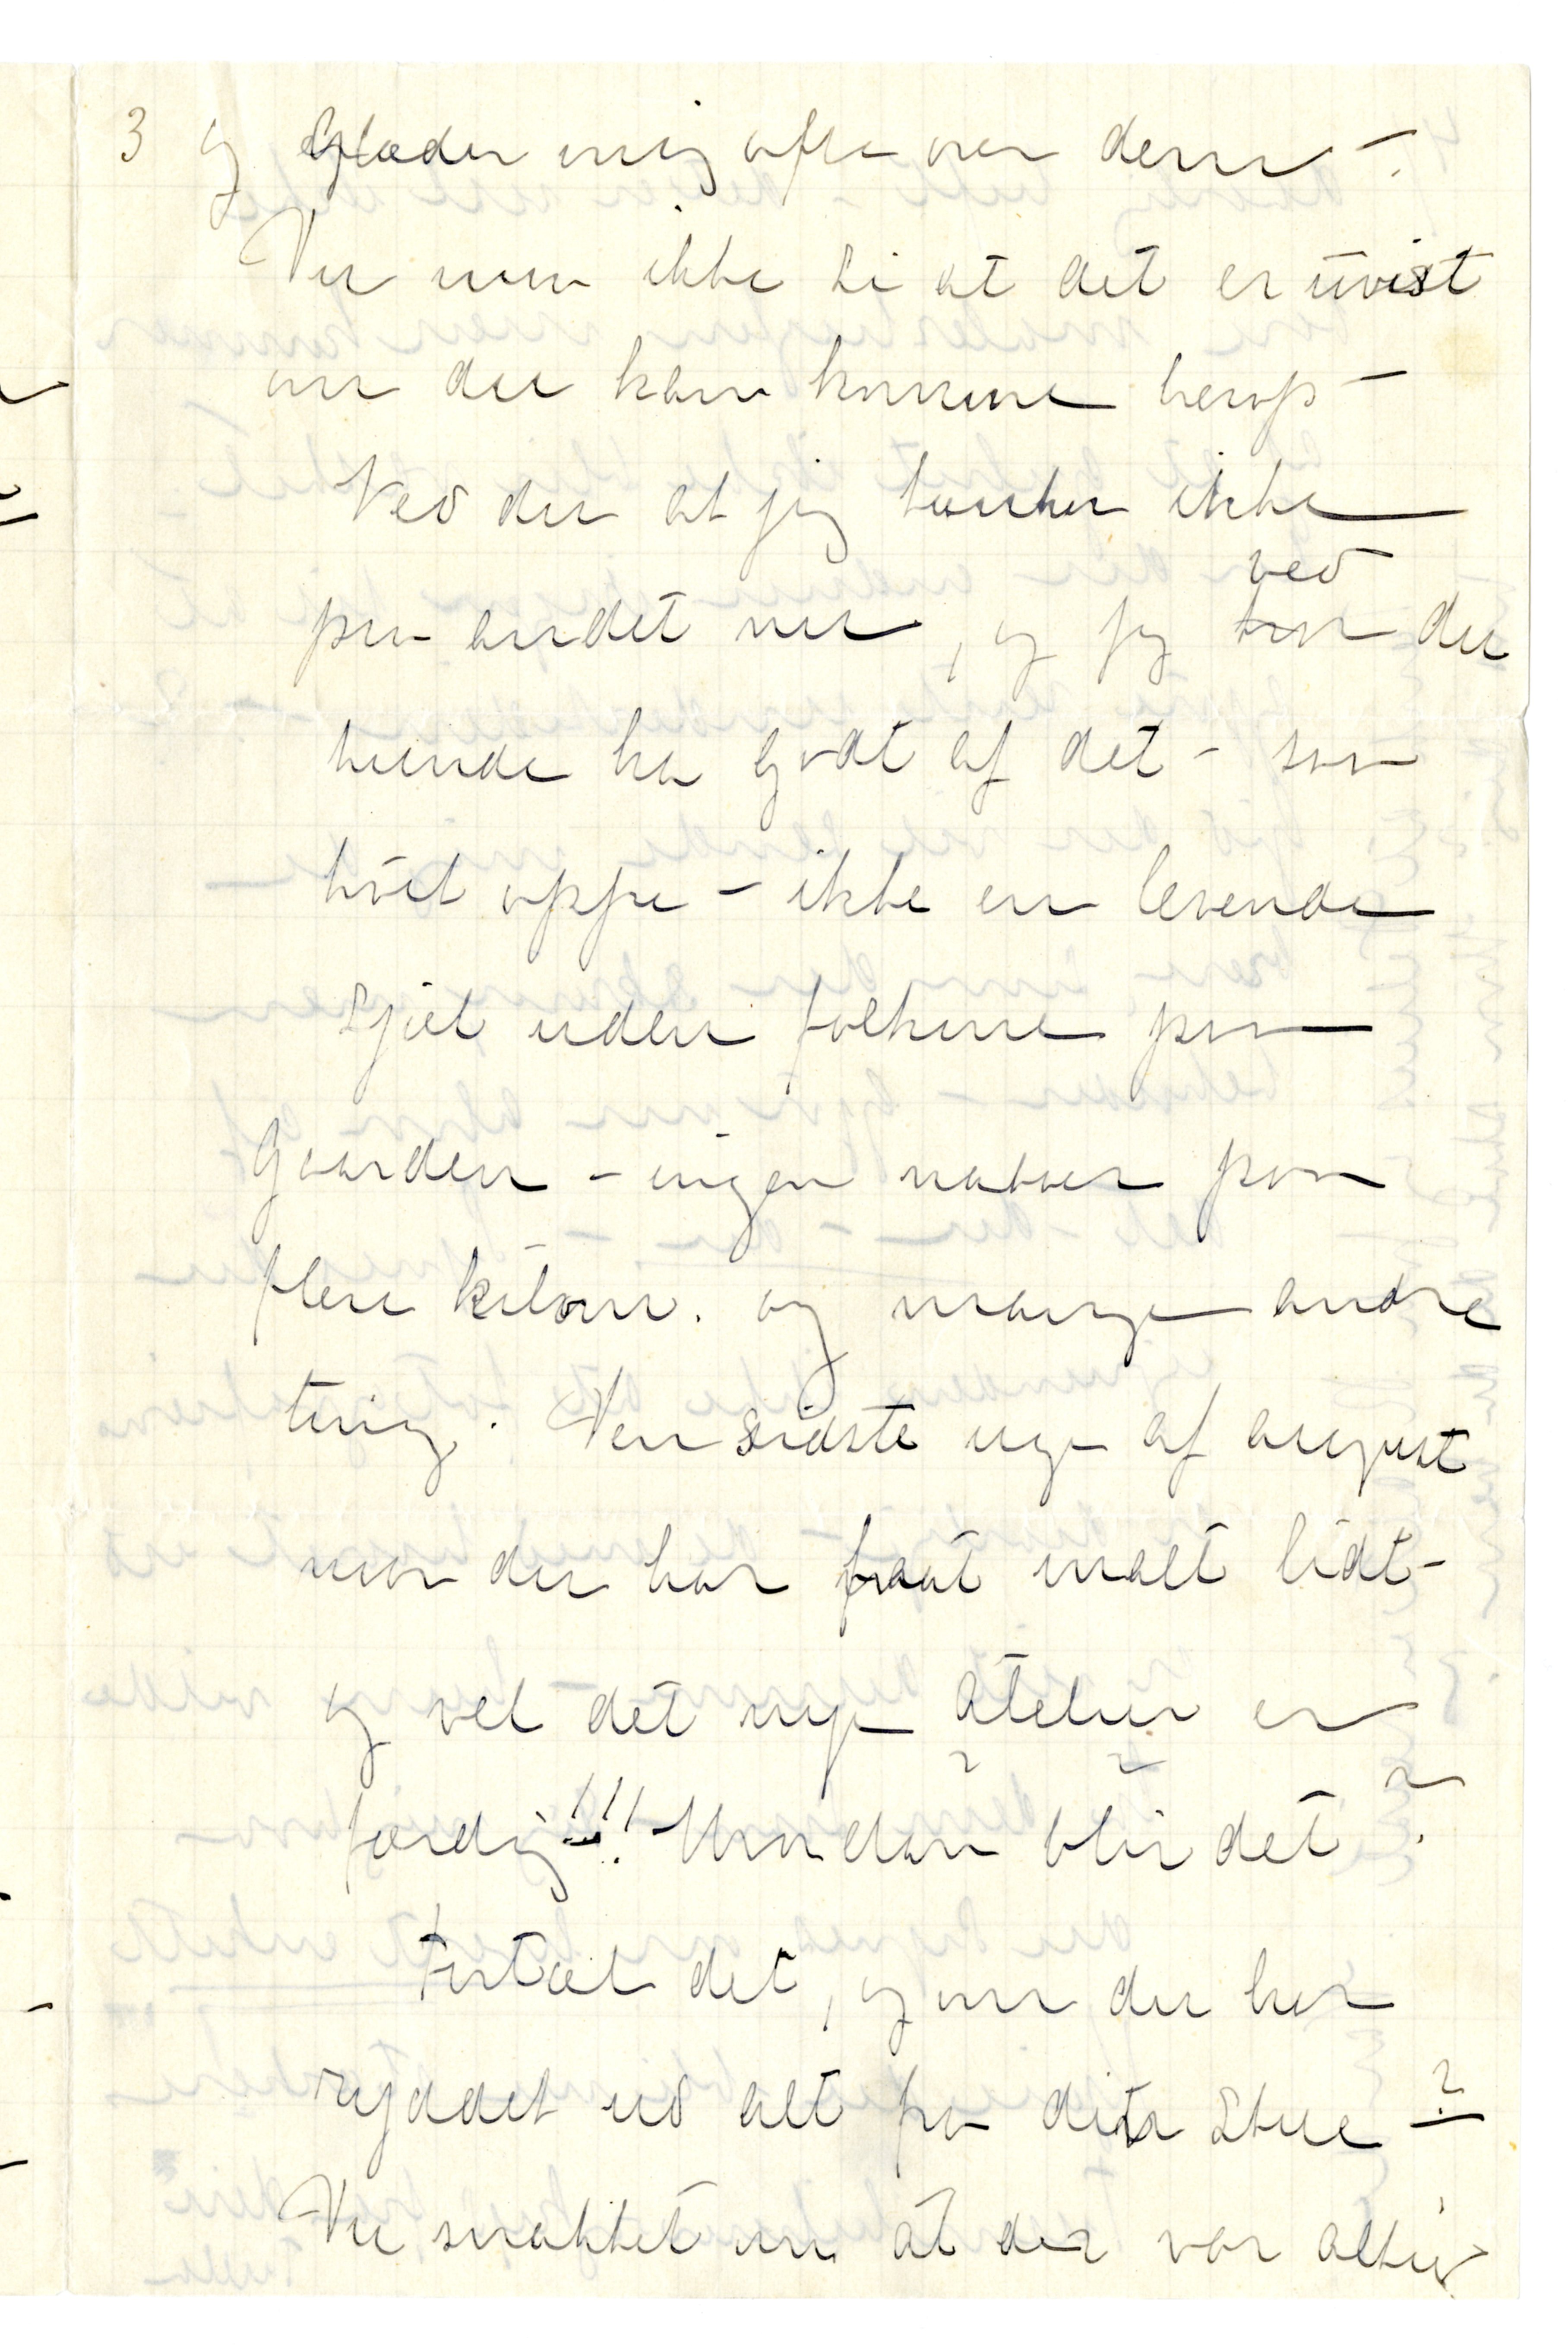 3 og Glæder mig ofte over dem –.
Du maa ikke si at det er uvist
om du kan komme herop –
Ved du at jeg tænker ikke
paa andet mer, og jeg tror ved du
kunde ha godt af det – saa
høit oppe – ikke en levende
Sjæl uden folkene paa
Gaarden – ingen naboer paa
flere kilom. og mange andre
ting. Den sidste uge af august
naar du har faat malt lidt –
og vel det nye atelier er
færdig!!! Hvordan blir det?
Fortæl det, og om du har
ryddet ud alt fra dit Stue?
Du snakket om at der var altid